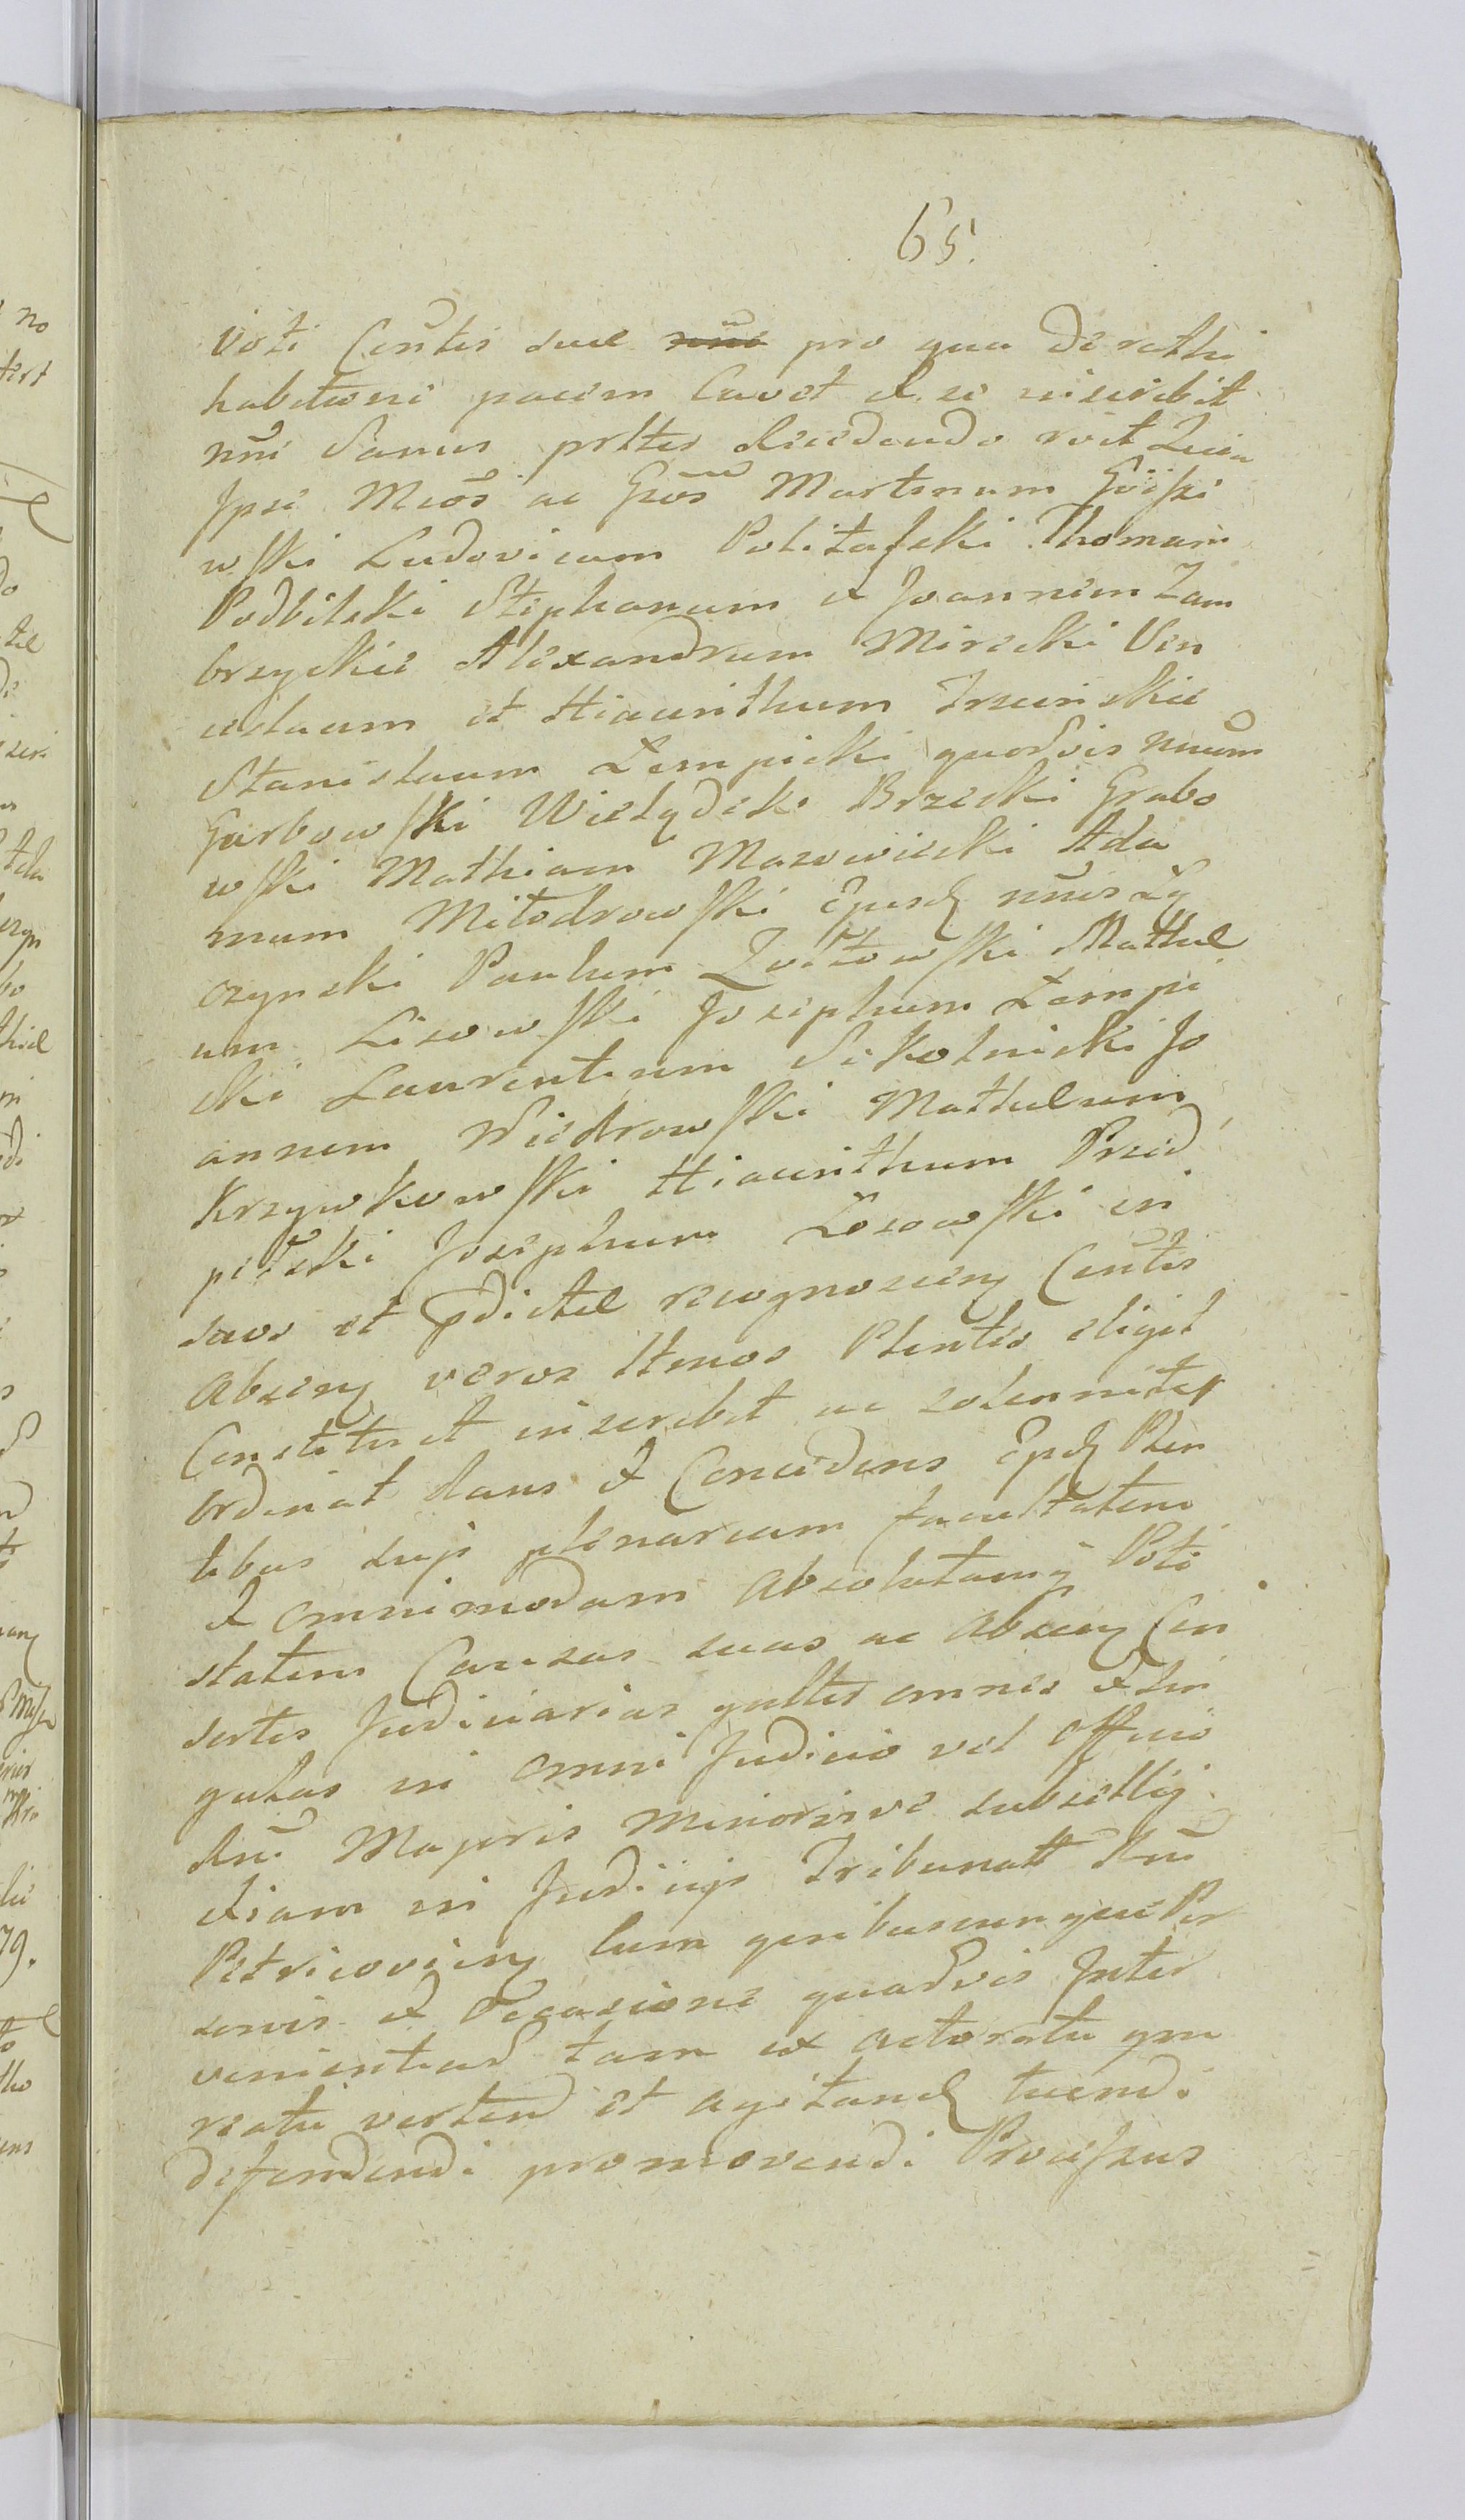 65.
Voti Centis suae nunc pro qua de rathi
habitione pacem Cavet et se inscribit
nni Sanus prltes Recedendo roit
Ipse Mcos ac Gsos Martinum
wski Ludovicum Politalski Thomam
Podbilski Stephanum et Joannem Zam
brzyckie Alexandrum Mirecki Ven
ceslaum et Hiacinthum Trzcinskie
Stanislaum Łempicki quodvis nnum
Garbowski Wielądek Brzeski Grabo
wski Mathiam Mazowiecki Ada
mum Miłodrowski Epusd nnis Łą
czynski Paulum Zołtowski Mathae
um Lisowski Josephum Łempi
cki Laurentium Sikolnicki Jo
annem Siedrowski Mathaeum
Krzywkowski Hiacinthum Przed
pełski Josephum Łosowski in
suos et pdictae recognoscenq Centis
Absenq veros ltmos Plentes eligit
Constituit inscribit ac solenniter
Ordinat dans et Concedens Epsd Plen
tibus suis plenariam facultatem
et omnimodam absolutamq Pote
statem Causas suas ac Absenq Con
sortis Judiciarias qultes omnes et sin
gulas in omni Judicio vel Officio
Rni Majoris Minorisve subsellij
etiam in Judiciis Tribunalt Rni
Petricovienq Cum quibuscunque Per
sonis et Occasione quadvis Inter
venientead tam ex actoratu qm
reatu vertend et agitand tuendi
defendendi promovendi Processus